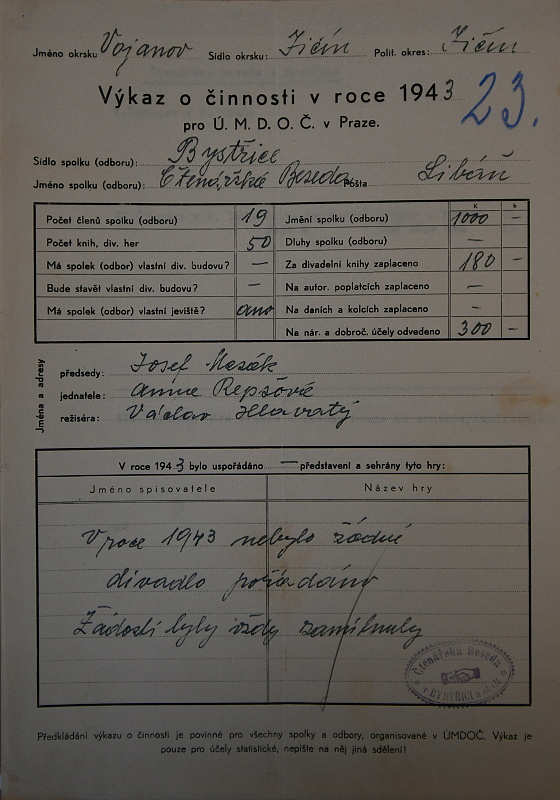 Jméno okrsku Vojanov Sídlo okrsku: Jičín Polit. okres: Jičín
Výkaz o činnosti v roce 1943 23.
pro Ú. M. D. O. Č. v Praze.
Sídlo spolku (odboru): Bystřice
Jméno spolku (odboru): Čtenářská Beseda Pošta Libáň
K h
Počet členů spolku (odboru) 19 Jmění spolku (odboru) 1000 —
Počet knih, div. her 50 Dluhy spolku (odboru) —
Má spolek (odbor) vlastní div. budovu? — Za divadelní knihy zaplaceno 180 —
Bude stavět vlastní div. budovu? — Na autor. poplatcích zaplaceno —
Má spolek (odbor) vlastní jeviště? ano Na daních a kolcích zaplaceno —
Na nár. a dobroč. účely odvedeno 300 —
Jména a adresy
předsedy: Josef
jednatele: Anna Repšová
režiséra: Václav Hlavatý
V roce 1943 bylo uspořádáno — představení a sehrány tyto hry:
Jméno spisovatele Název hry
V roce 1943 nebylo žádné
divadlo pořádáno
Žádosti byly vždy zamítnuty
Čtenářská Beseda
v BYSTŘICI
Předkládání výkazu o činnosti je povinné pro všechny spolky a odbory, organisované v ÚMDOČ. Výkaz je
pouze pro účely statistické, nepište na něj jiná sdělení!